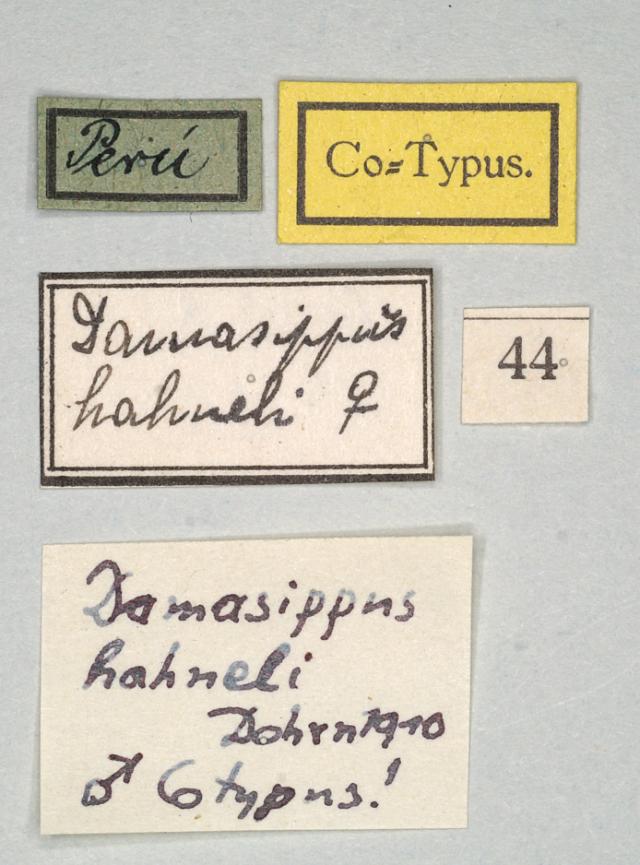 Perú
Co=Typus.
Damasippus
hahneli ♀
44
Damasippus
hahneli
Dohrn 1910
♂ Cotypus!